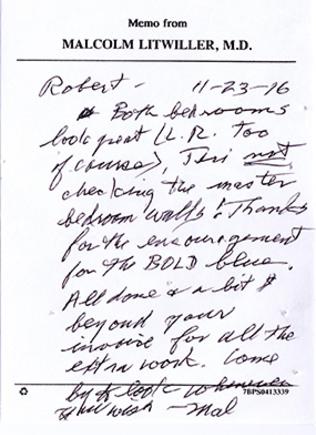 Memo from
MALCOLM LITWILLER, M.D.
Robert - 11-23-16
Both bedrooms
look great (L.R. too
of course),
checking the master
bedroom walls! Thanks
for the encouragement
for the BOLD blue.
All done & a bit $
beyond your
invoice for all the
extra work. Come
by & look whenever
you wish - Mal
7BPS0413339